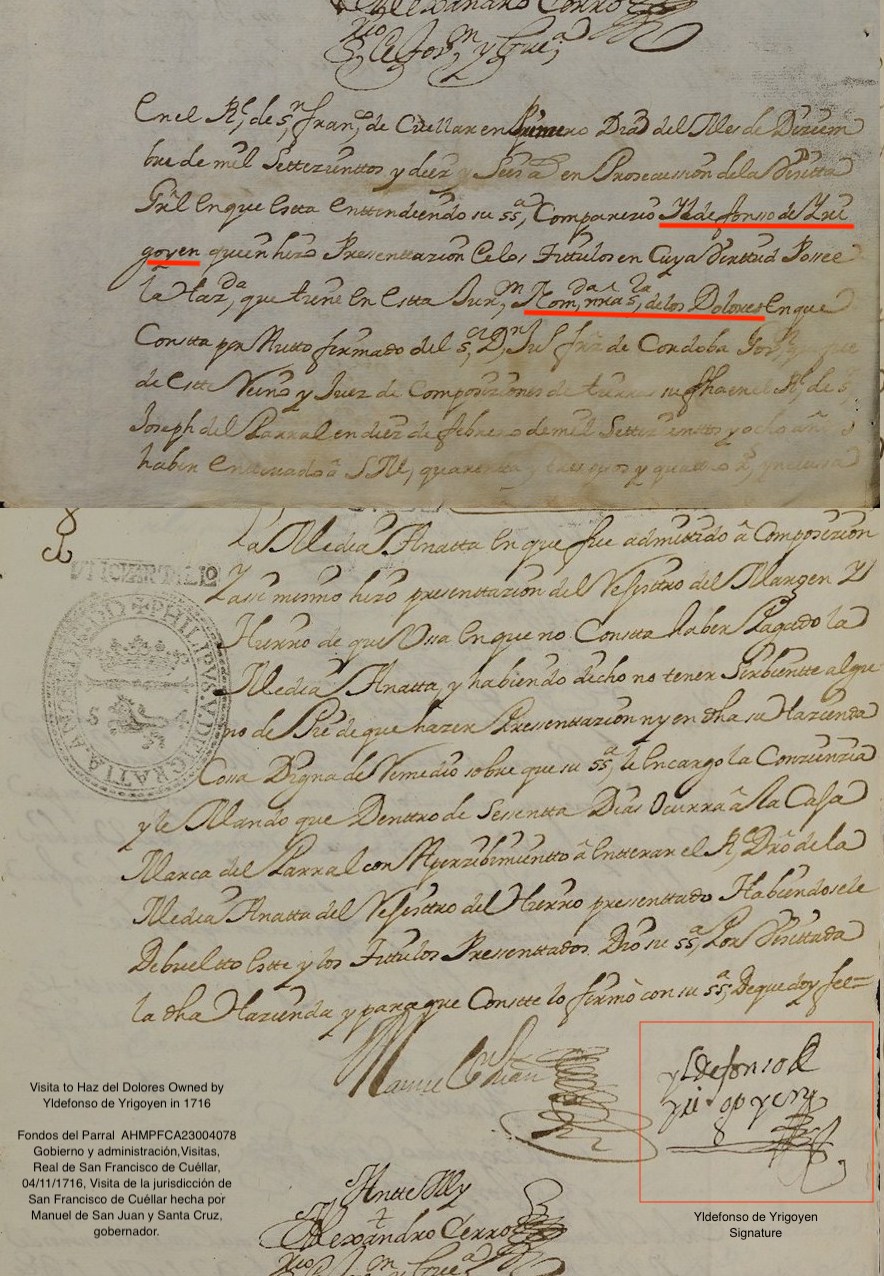 Alexandro Cerro
En el Rl, de Sn, franco de Cuellar en Primero Dia del Mes de Diziem
bre de mil Settezienttos y diez y Seis as en Prosecussion de la Vissitta
Grl En que Estta enttendiendo su ssa, Comparezio Yldefonsso de Yri
goyen quien hizo Presenttazion de los Tittulos en Cuya Virttud Possee
la Hazda, que tiene en Estta Jurn, Nomda, nra sra, de los Dolores En que
Constta por Autto firmado del Sor Dn, Ju frz de Cordoba
de este Reino y Juez de Composiziones de tierras su fha en el Rl, de Sn,
Joseph del Parral en diez de febrero de mil Settezienttos y ocho años
haber entterado a S M, quarentta y tres pos y quattro rs, yncussa
la Media Anatta en que fue admittido a Composizion
Y assi mesmo hizo presenttazion del Rejisttro del Margen Y
Hierro de que Ussa en que no Constta haber Pagado la
Media Anatta, y habiendo dicho no tener Serbientte algu
no de Pie de que hazer Presenttazion ny en dha su Hazienda
Cossa Digna de Remedio sobre que su ssa, le encargo la Conzienzia
y le Mando que Denttro de Sessentta Dias Ocurra â la Cassa
Marca del Parral con Aperzibimientto â Entterar el Rl Dro de la
Media Anatta del Rejisttro del Hierro presenttado Habiendosele
Debueltto Este y los Tittulos Presenttados Dio su ssa, Por Vissittada
la dha Hazienda y para que Constte lo firmò con su ssa, De que doy fee=
PHILIPUS V D GRATIA
yldefonso de
yrigoyen
Antte My
Alexandro Cerro
Visita to Haz del Dolores Owned by
Yldefonso de Yrigoyen in 1716
Fondos del Parral AHMPFCA23004078
Gobierno y administración,Visitas,
Real de San Francisco de Cuéllar,
04/11/1716, Visita de la jurisdicción de
San Francisco de Cuéllar hecha por
Manuel de San Juan y Santa Cruz,
gobernador.
Yldefonso de Yrigoyen
Signature